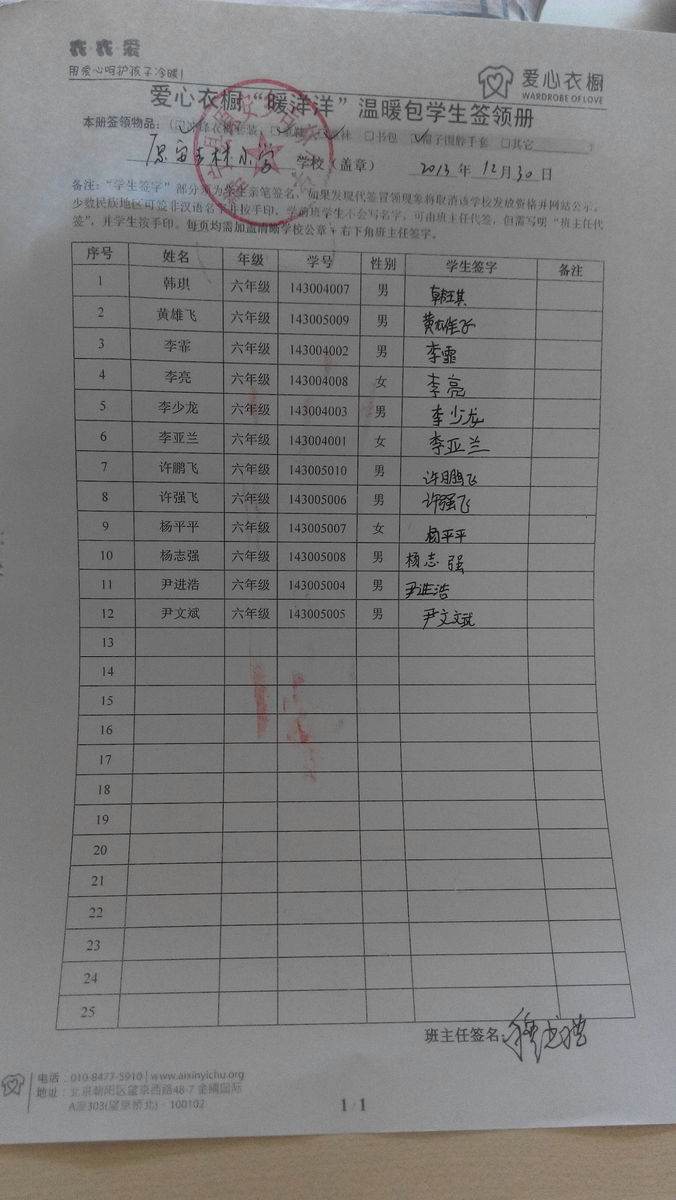 衣·衣·爱
用爱心呵护孩子冷暖!
爱心衣橱
WARDROBE OF LOVE
爱心衣橱“暖洋洋”温暖包学生签领册
本册签领物品：(☑冲锋衣裤套装 □ ☑袜 □书包 ☑帽子围脖手套 □其它 )
林小学 学校（盖章） 2013 年 12 月 30 日
备注：“学生签字”部分须为学生亲笔签名，如果发现代签冒领现象将取消该学校发放资格并网站公示。
少数民族地区可签非汉语名字并按手印，学前班学生不会写名字，可由班主任代签，但需写明“班主任代
签”，并学生按手印。每页均需加盖清晰学校公章＋右下角班主任签字。
序号 姓名 年级 学号 性别 学生签字 备注
1 韩琪 六年级 143004007 男 韩琪
2 黄雄飞 六年级 143005009 男 黄雄飞
3 李霏 六年级 143004002 男 李霏
4 李亮 六年级 143004008 女 李亮
5 李少龙 六年级 143004003 男 李少龙
6 李亚兰 六年级 143004001 女 李亚兰
7 许鹏飞 六年级 143005010 男 许鹏飞
8 许强飞 六年级 143005006 男 许强飞
9 杨平平 六年级 143005007 女 杨平平
10 杨志强 六年级 143005008 男 杨志强
11 尹进浩 六年级 143005004 男 尹进浩
12 尹文斌 六年级 143005005 男 尹文斌
13
14
15
16
17
18
19
20
21
22
23
24
25
班主任签名:
电话：010-8477-5910 | www.aixinyichu.org
地址：北京朝阳区望京西路48-7 金隅国际
A座303(望京桥北)·100102
1 / 1